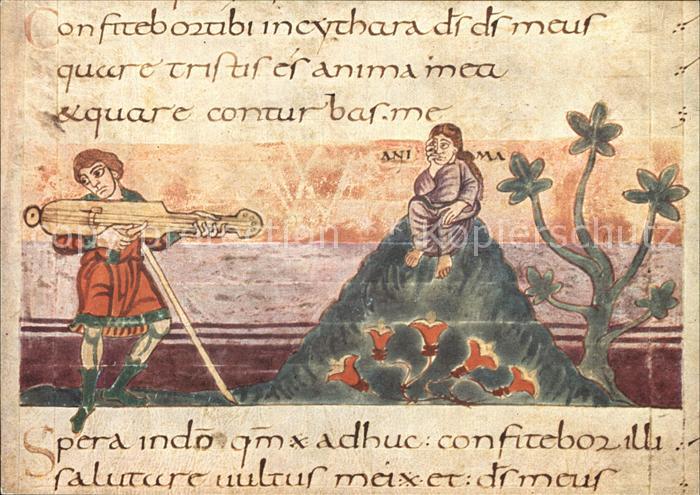 Confitebor tibi in cythara d̄s d̄s meus
quare tristis es anima mea
& quare conturbas me
ANI MA
Copy protection Kopierschutz
Spera in dō qm̄ adhuc confitebor illi
salutare uultus mei & d̄s meus